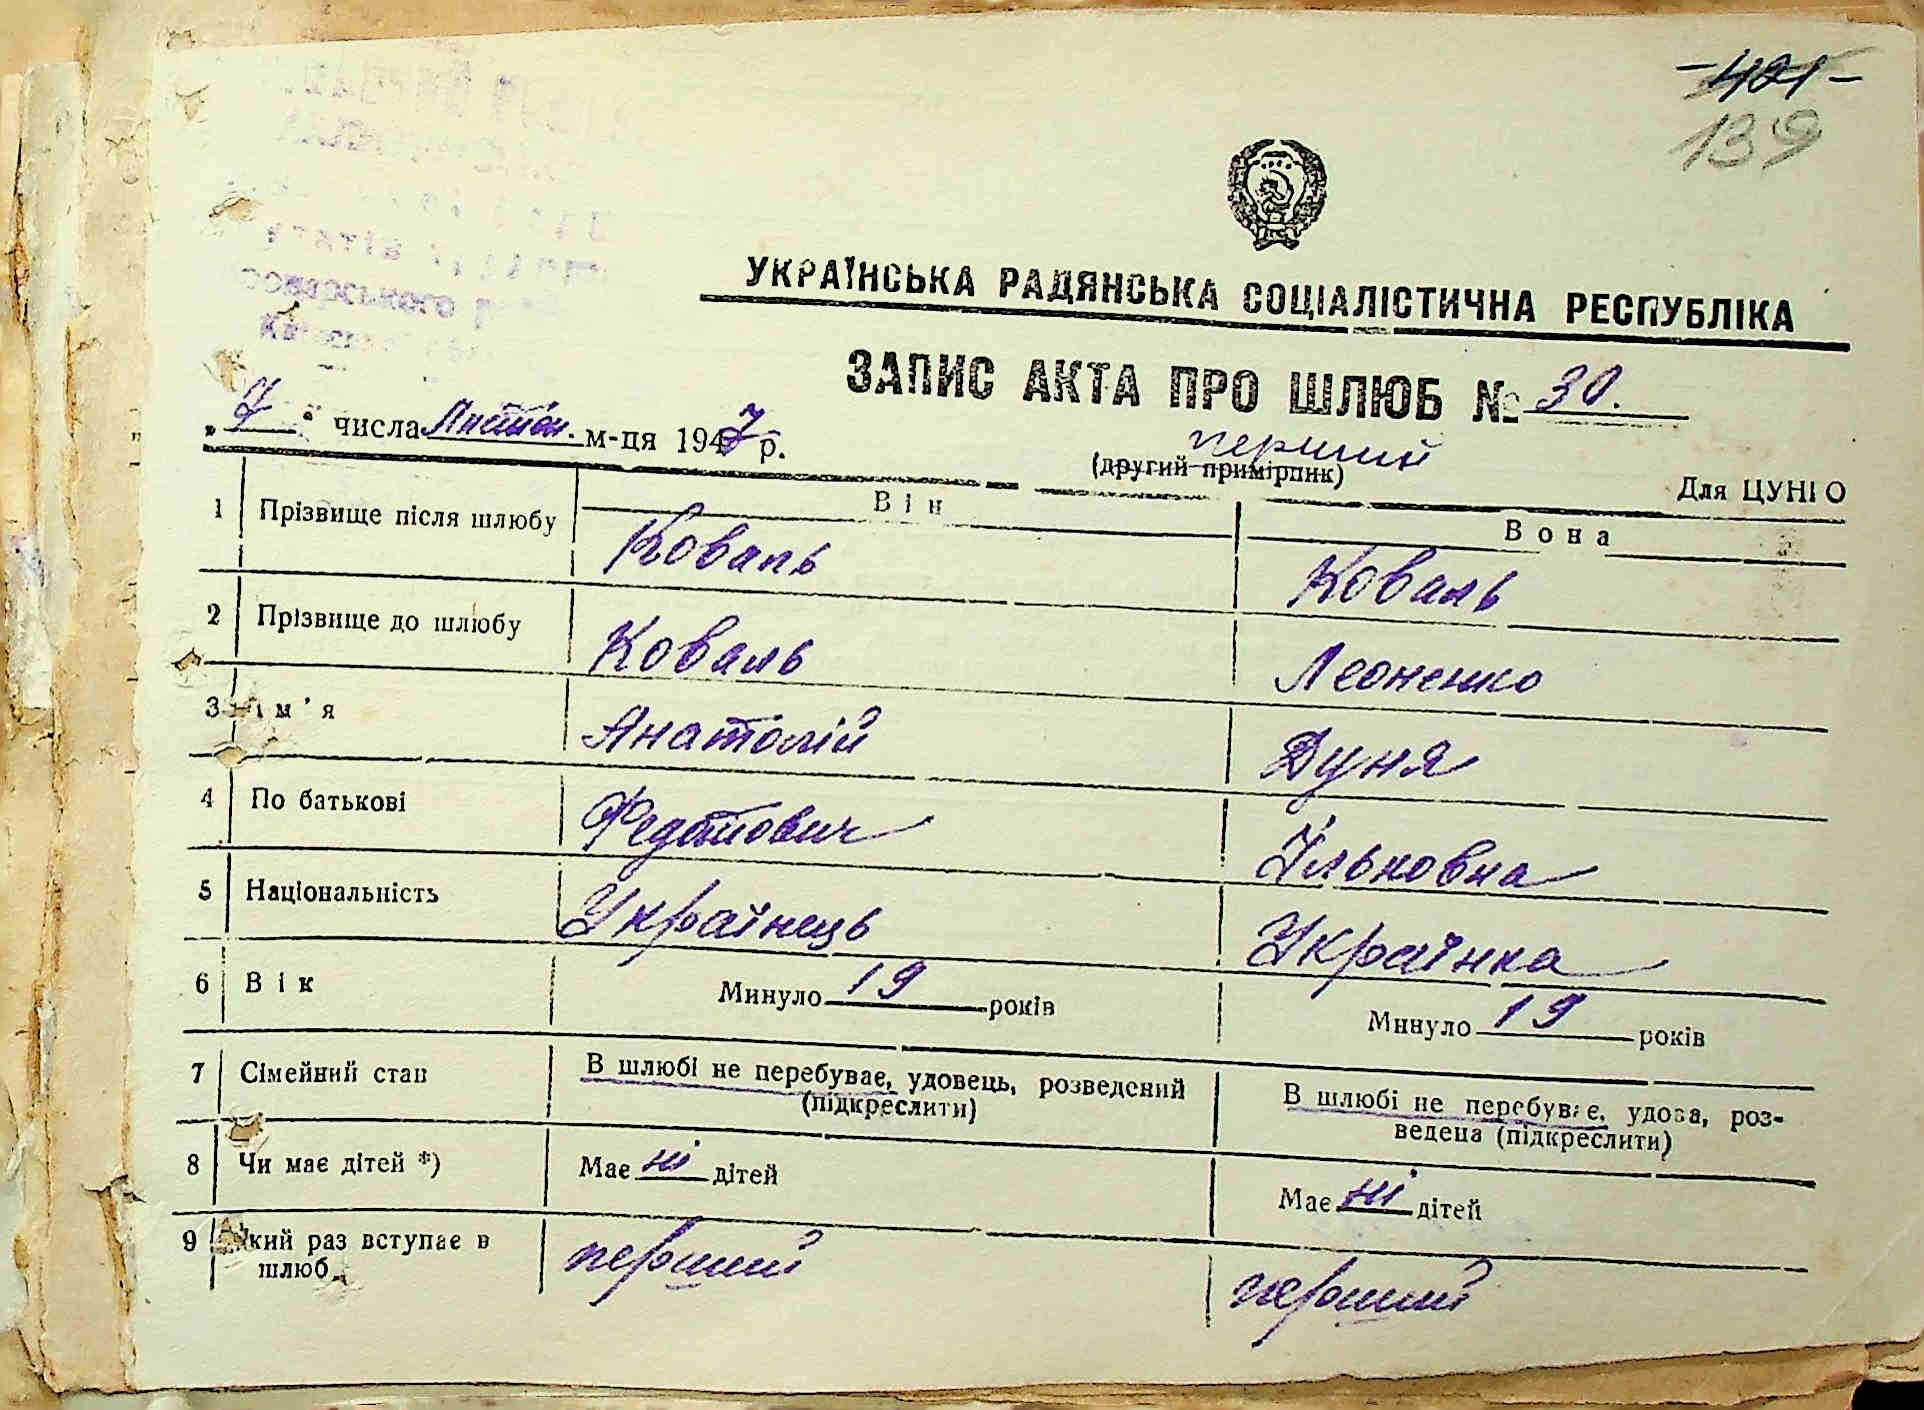 -401-
139
УКРАЇНСЬКА РАДЯНСЬКА СОЦІАЛІСТИЧНА РЕСПУБЛІКА
ЗАПИС АКТА ПРО ШЛЮБ № 30.
„7" числа Листоп. м-ця 1947 р.
перший
(другий примірник)
Для ЦУНГО
Він Вона
1 Прізвище після шлюбу Коваль Коваль
2 Прізвище до шлюбу Коваль Леоненко
3 Ім'я Анатолій Дуня
4 По батькові Федотович Ільковна
5 Національність Українець Українка
6 Вік Минуло 19 років Минуло 19 років
7 Сімейний стан В шлюбі не перебуває, удовець, розведений (підкреслити) В шлюбі не перебуває, удова, роз-
ведена (підкреслити)
8 Чи має дітей *) Має ні дітей Має ні дітей
9 Який раз вступає в
шлюб перший перший